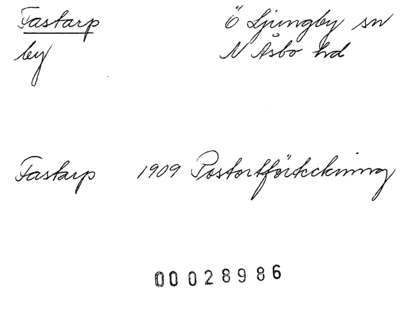 Fastarp Ö Ljungby sn
by N Åsbo hd
Fastarp 1909 Postortförteckning
00028986